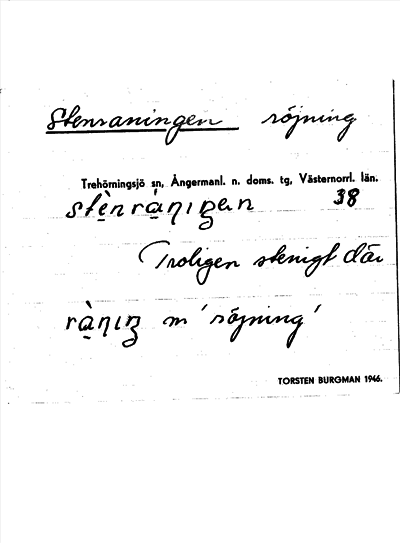 Stenraningen röjning
Trehörningsjö sn, Ångermanl. n. doms. tg, Västernorrl. län.
stè̠nrá̠ŋıŋen 38
Troligen stenigt där
rà̠ŋıŋ m 'röjning'
TORSTEN BURGMAN 1946.